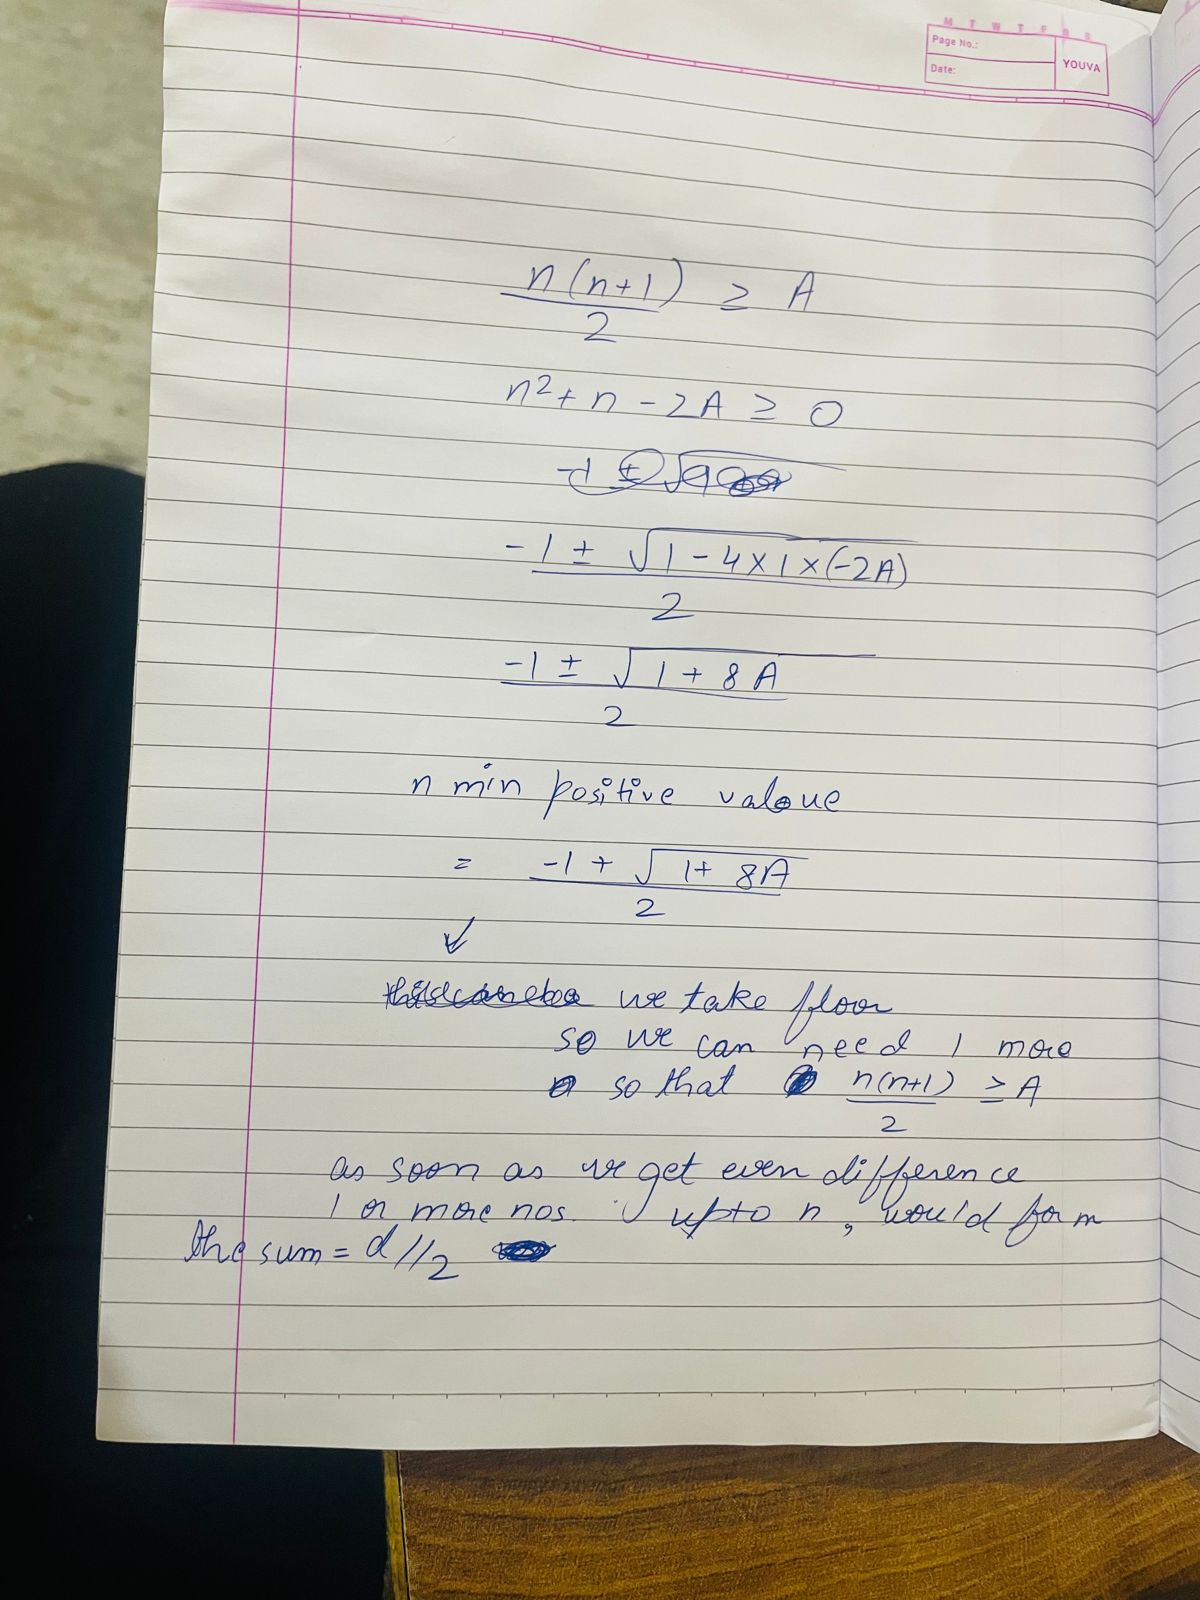 M T W T F S S
Page No.:
YOUVA
Date:
n(n+1)/2 ≥ A
n² + n - 2A ≥ 0
-1 ± √(1 - 4×1×(-2A))/2
-1 ± √(1 + 8A)/2
n min positive valoue
= -1 + √(1 + 8A)/2
we take floor
so we can need 1 more
so that n(n+1)/2 ≥ A
as soon as we get even difference
1 or more nos. upto n, would form
the sum = d//2